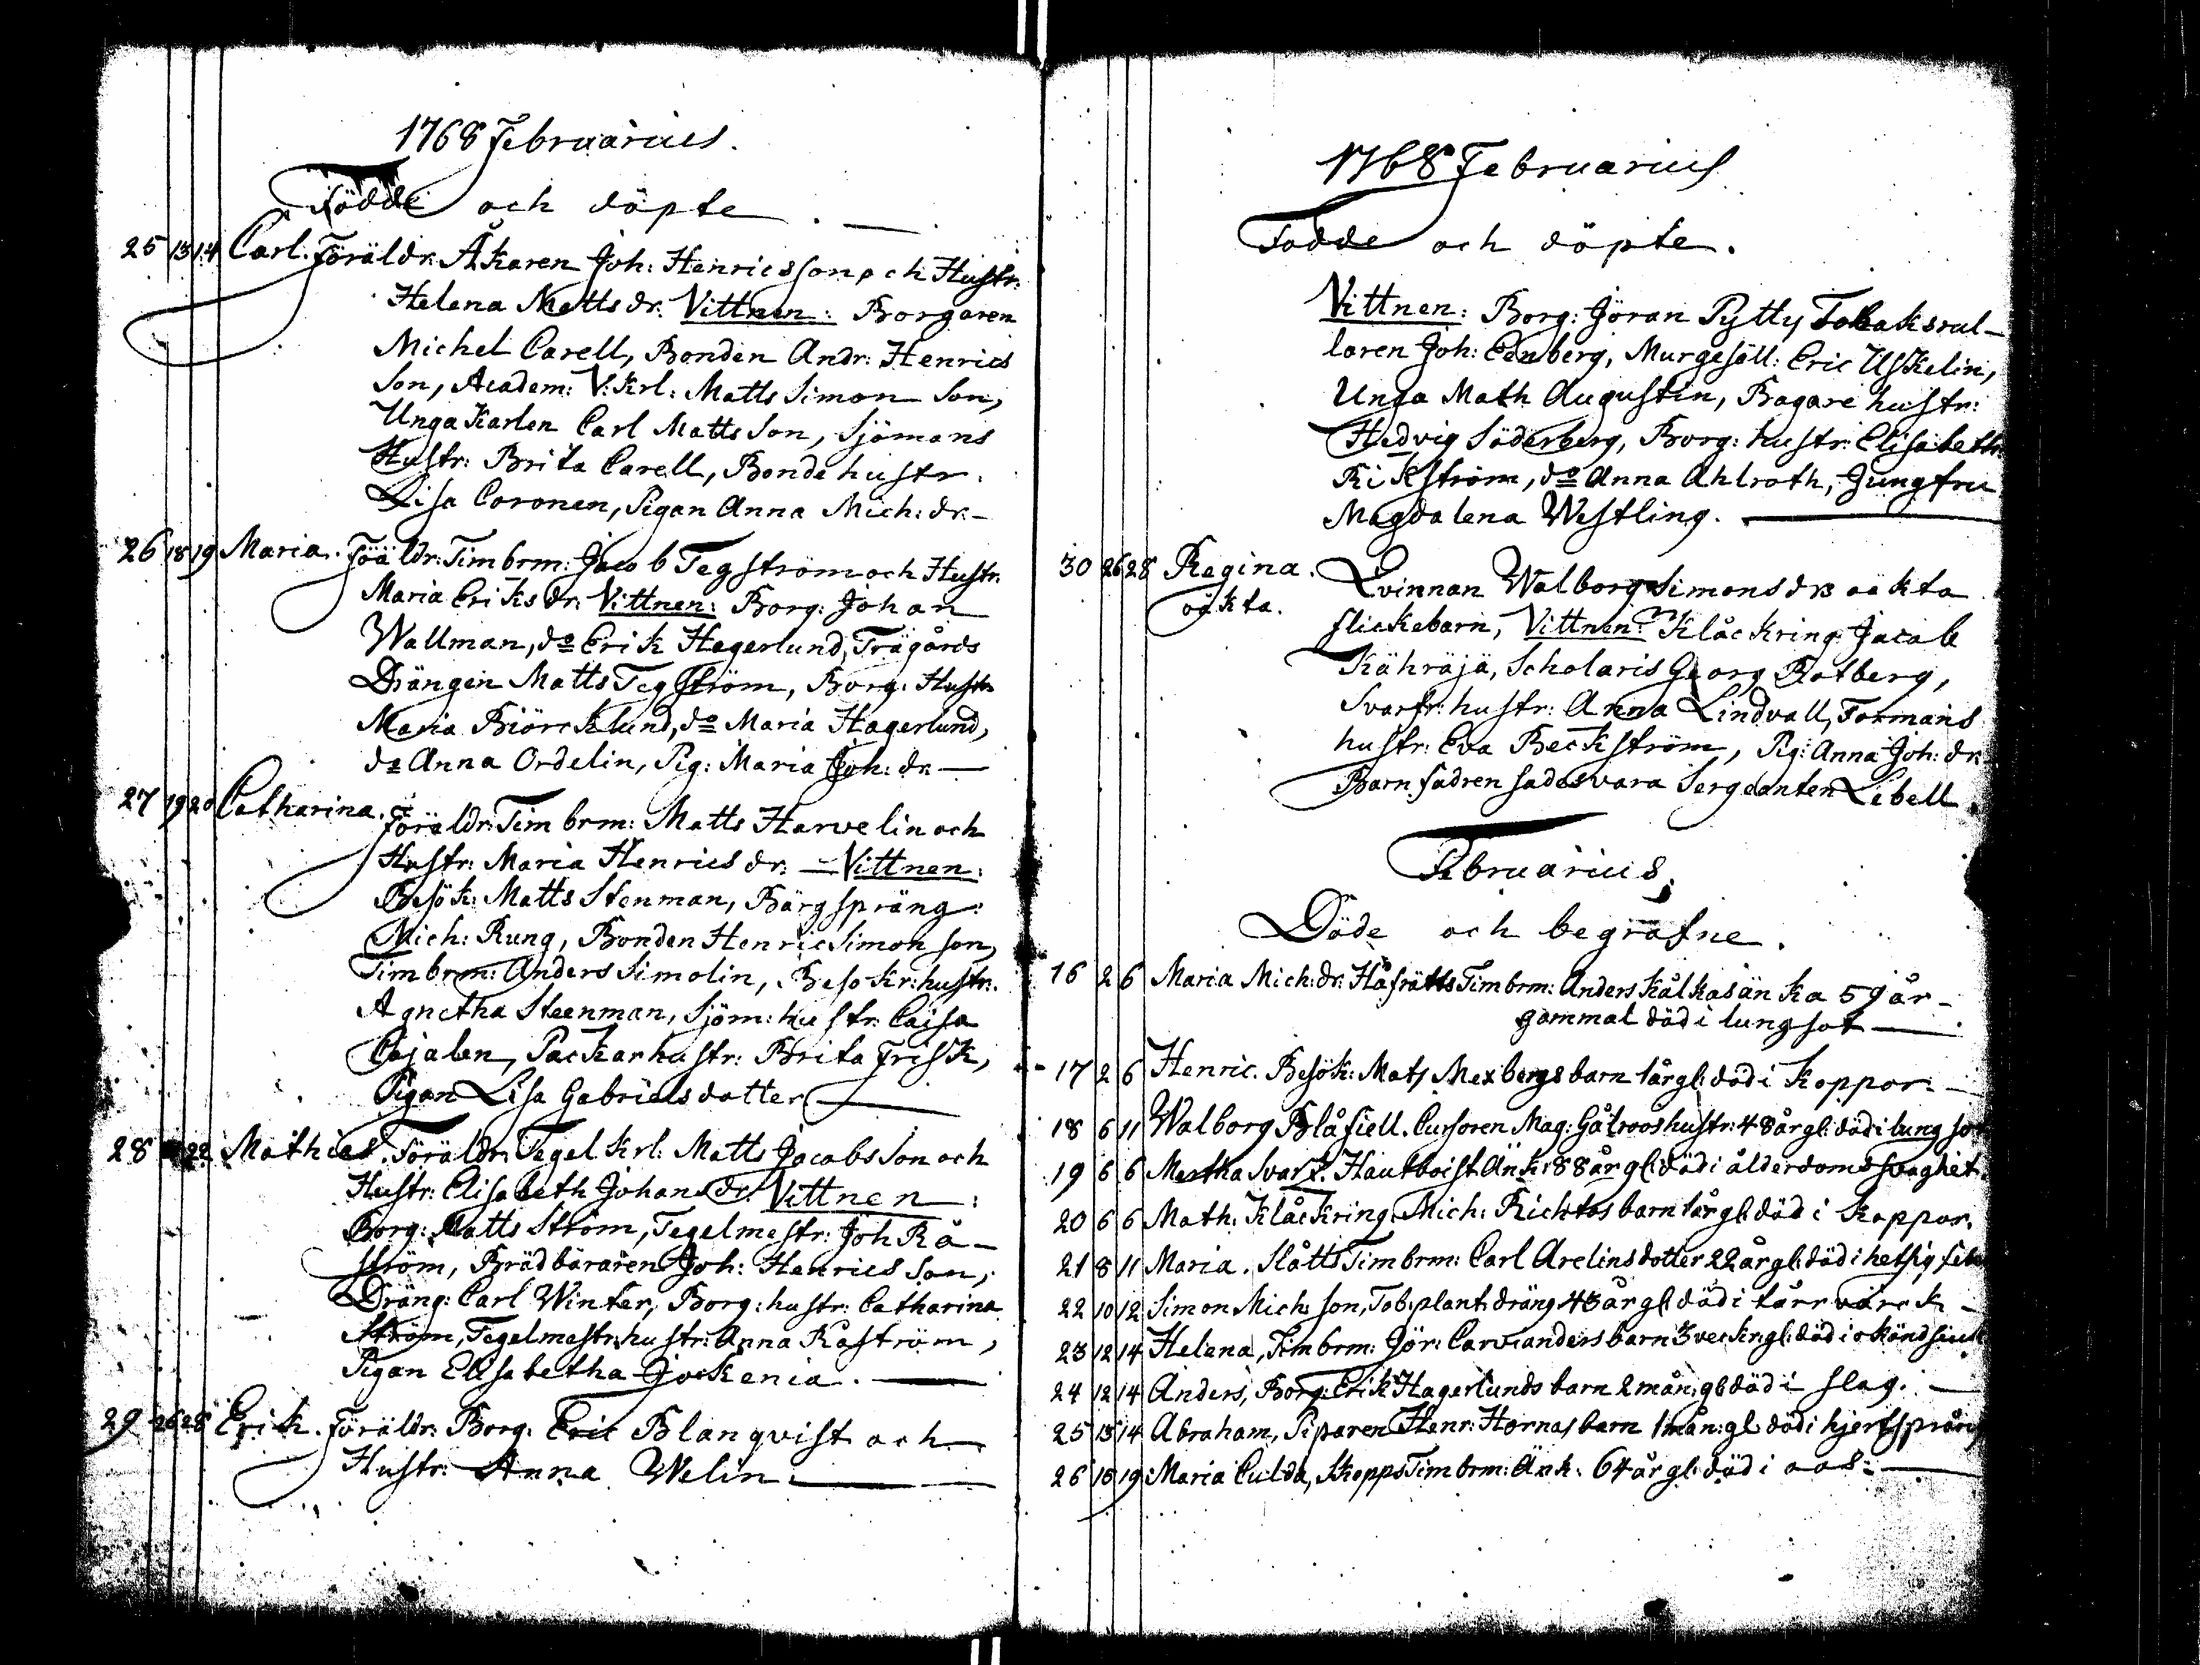 1768 Februarius.
Födde och döpte.
25 13 14 Carl. Föräldr: Åkaren Joh: Henricsson och Hustr:
Helena Mattsdr: Vittnen: Borgaren
Michel Carell, Bonden Andr: Henrics
Son, Academ: V:krl: Matts Simon Son,
Unga Karlen Carl Matts Son, Sjömans
Hustr: Brita Carell, Bonde hustr.
Lisa Coronen, Pigan Anna Mich: dr.
26 18 19 Maria. Föäldr: Timbrm: Jacob Tegström och Hustr.
Maria Eriksdr: Vittnen: Borg: Johan
Wallman, do Erik Hegerlund, Trägårds
Drängen Matts Tegström, Borg: Hustr
Maria Biörcklund, do Maria Hagerlund,
do Anna Ordelin, Pig: Maria Joh: dr.
27 19 20 Catharina. Föräldr: Timbrm: Matts Harvelin och
Hustr: Maria Henricsdr: Vittnen:
Besök: Matts Stenman, Bärgspräng:
Mich: Rung, Bonden Henric Simon son,
Timbrm: Anders Simolin, Besokr: hustr.
Agnetha Steenman, Sjöm: hustr: Caisa
Cajalen, Packarhustr: Brita Frisk,
Pigan Lisa Gabrielsdotter
28 22 Mathias. Föräldr: Tegelkrl: Matts Jacobsson och
Hustr: Elisabeth Johansdr: Vittnen:
Borg: Matts Ström, Tegelmestr: Joh Rå-
ström, Brädbäraren Joh: Henrics Son,
Dräng: Carl Winter, Borg: hustr: Catharina
Ström, Tegelmestr: hustr: Anna Raström,
Pigan Elisabetha Jockenia.
29 26 28 Erik. Föräldr: Borg: Eric Blanqvist och
Hustr: Anna Welin
1768 Februarius
Födde och döpte.
Vittnen: Borg: Jöran Pytty Tobaksrul-
laren Joh: Cenberg, Murgesäll: Eric Uskelin,
Unga Math Augustin, Bagare hustr:
Hedvig Söderberg, Borg: hustr: Elisabeth
Rikström, do Anna Ahlroth, Jungfru
Magdalena Westling.
30 26 28 Regina. Qvinnan Walborg Simonsdrs oäkta
oäkta. flickebarn, Vittnen: Klåckring: Jacob
Kähräjä, Scholaris Georg Rotberg,
Svarfr: hustr: Anna Lindvall, Formans
hustr: Eva Beckström, Pig: Anna Joh: dr.
Barnfadren sades vara Sergeanten Libell.
Februarius.
Döde och begrafne.
16 2 6 Maria Mich: dr. Håfrätts Timbrm: Anders Kålkas änka 59 år
gammal död i lungsot
17 2 6 Henric. Besök: Mats Mexbergs barn 1 år gl: död i koppor.
18 6 11 Walborg Blåfiell. Cursoren Mag: Gåtroos hustr: 48 år gl: död i lungsot
19 6 6 Mertha Svart. Hautboist Änk: 88 år gl: död i ålderdoms svaghet.
20 6 6 Math: Klåckring: Mich: Richtos barn 1 år gl: död i koppor.
21 8 11 Maria. Slåtts Timbrm: Carl Arelins dotter 22 år gl: död i hetsig feb
22 10 12 Simon Mich: son, Tob: plant: dräng 43 år gl: död i tårrvärck
23 12 14 Helena, Timbrm: Jör: Carvianders barn 3 veckr: gl: död i okänd siuk
24 12 14 Anders, Borg: Erik Hagerlunds barn 2 mån: gl: död i slag.
25 13 14 Abraham, Piparen Henr: Hornas barn 1 mån: gl: död i hjertsprång
26 18 19 Maria Culda, Skepps Timbrm: Änk: 64 år gl: död i aas: